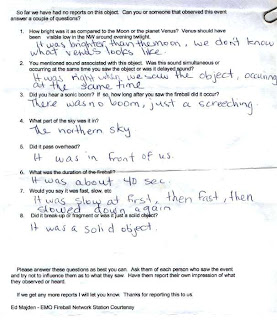 So far we have had no reports on this object. Can you or someone that observed this event
answer a couple of questions?
1. How bright was it as compared to the Moon or the planet Venus? Venus should have
been visible low in the NW around evening twilight.
It was brighter than the moon, we don't know
what venus looks like.
2. You mentioned sound associated with this object. Was this sound simultaneous or
occurring at the same time you saw the object or was it delayed sound?
It was right when we saw the object, occuring
at the same time
3. Did you hear a sonic boom? If so, how long after you saw the fireball did it occur?
There was no boom, just a screeching.
4. What part of the sky was it in?
The northern sky
5. Did it pass overhead?
It was in front of us.
6. What was the duration of the fireball?
It was about 40 sec.
7. Would you say it was fast, slow, etc
It was slow at first, then fast, then
slowed down again
8. Did it break-up or fragment or was it just a solid object?
It was a solid object.
Please answer these questions as best you can. Ask them of each person who saw the event
and try not to influence them as to what they saw. Have them report their own impression of what
they observed or heard.
If we get any more reports I will let you know. Thanks for reporting this to us.
Ed Majden - EMO Fireball Network Station Courtenay